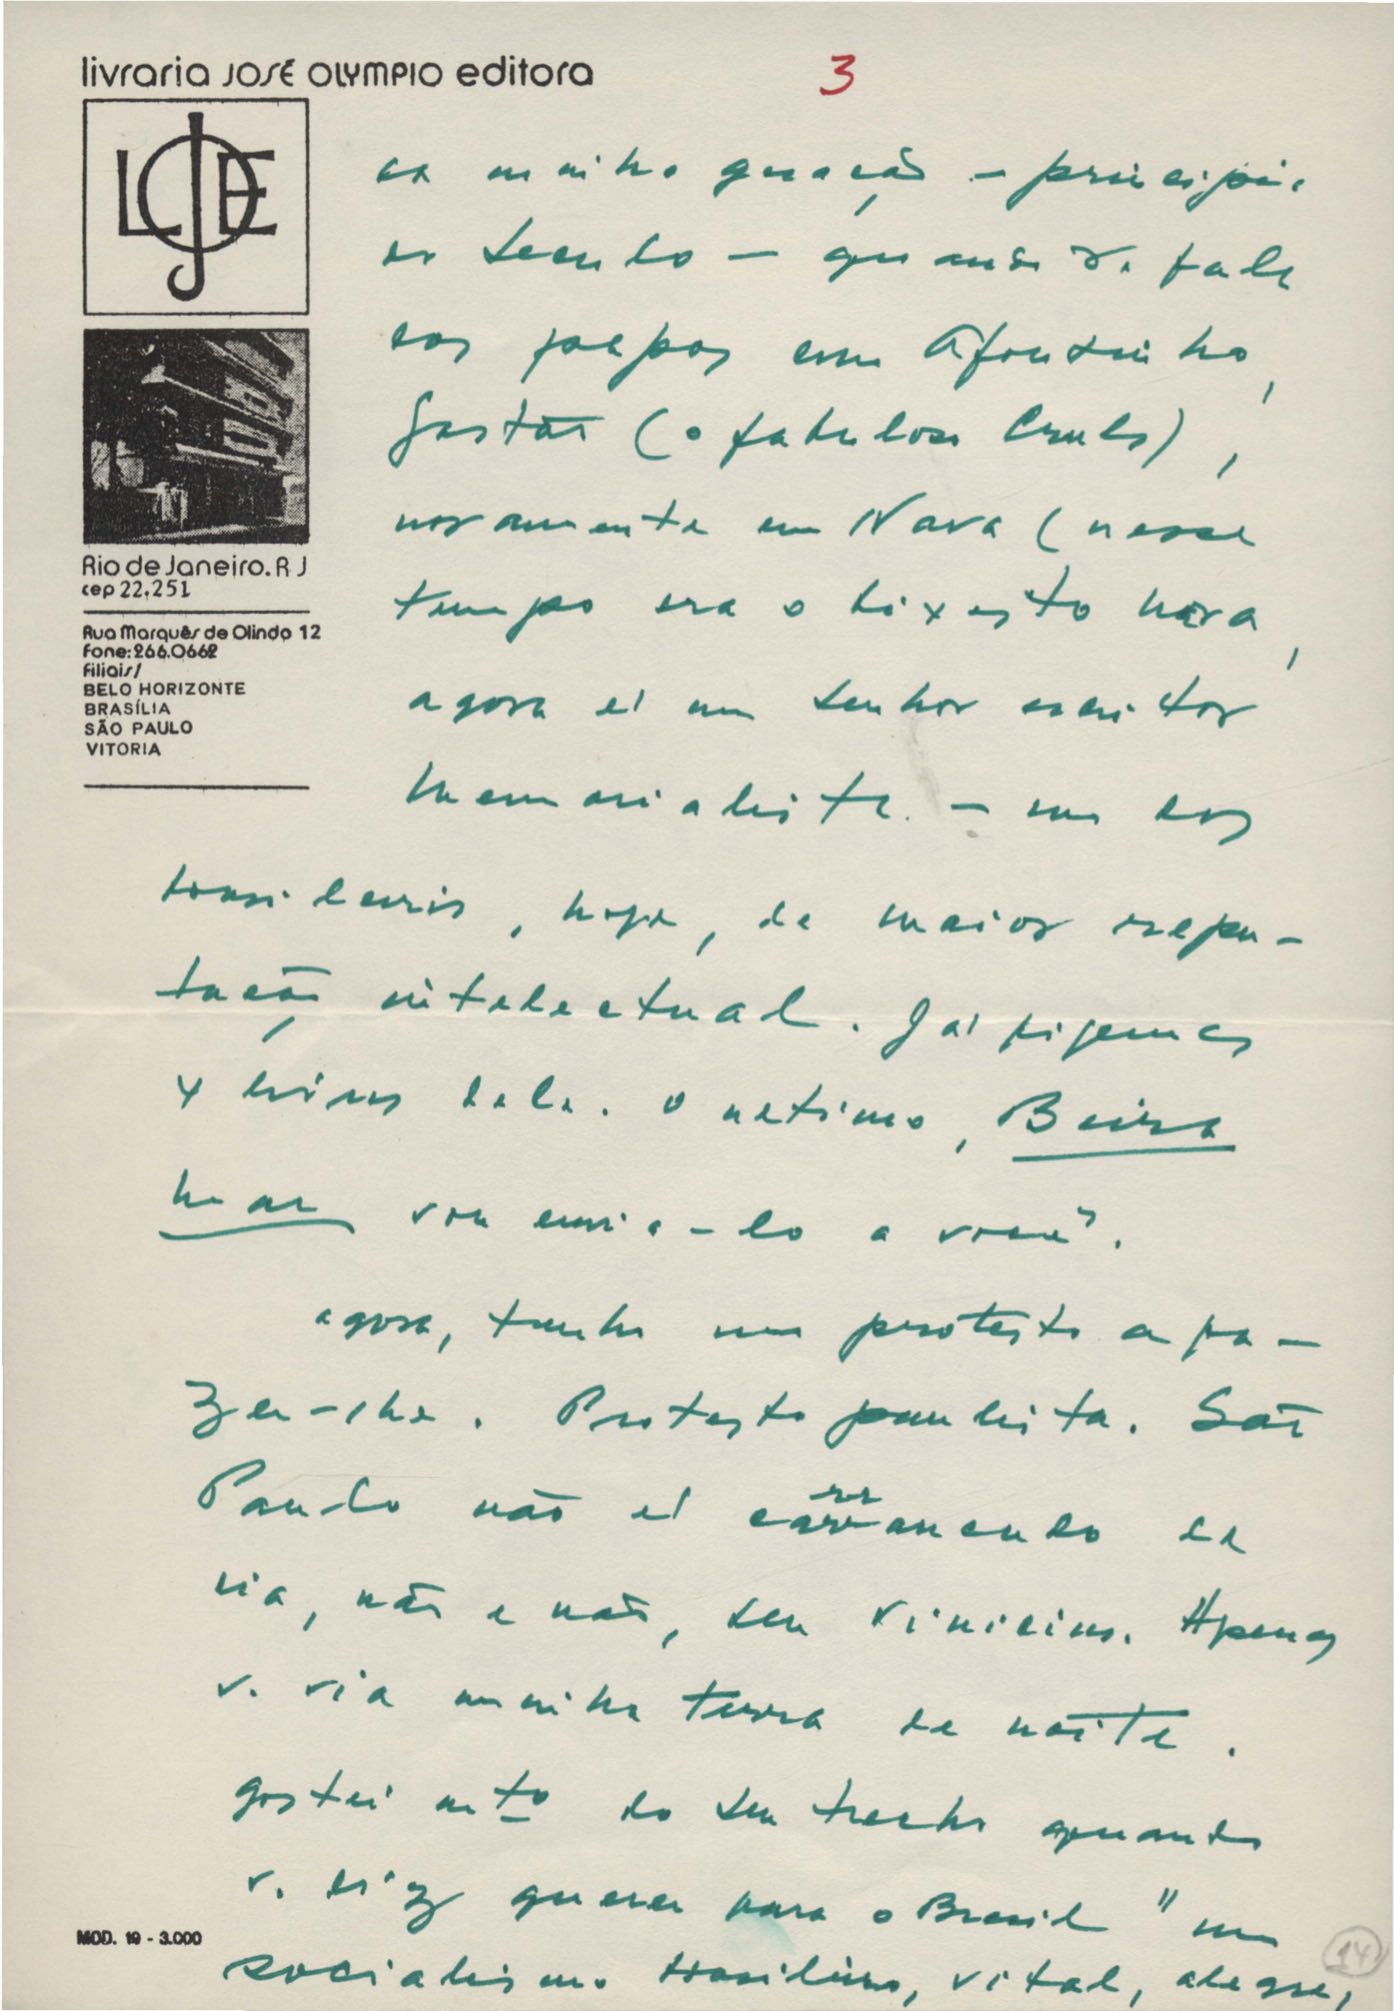 livraria JOSÉ OLYMPIO editora
3
LJOE
Rio de Janeiro. RJ
cep 22.251
Rua Marquês de Olinda 12
Fone: 266.0662
Filiais/
BELO HORIZONTE
BRASÍLIA
SÃO PAULO
VITORIA
da minha geração – princípio
do seculo – quando v. fala
dos papos com Afonsinho,
Gastão (o fabuloso Cruls),
novamente em Nava (nesse
tempo era o bixesto Nava,
agora é um senhor escritor
memorialista – um dos
brasileiros, hoje, de maior repu-
tação intelectual. Já fizemos
4 livros dele. O ultimo, Beira
mar vou envia-lo a você.
Agora, tenho um protesto a fa-
zer-lhe. Protesto paulista. São
Paulo não é carrancudo de
dia, não e não, seu Vinicius. Apenas
v. via minha terra de noite.
Gostei mto do seu trecho quando
v. diz querer para o Brasil "um
socialismo brasileiro, vital, alegre,
MOD. 19 - 3.000
14